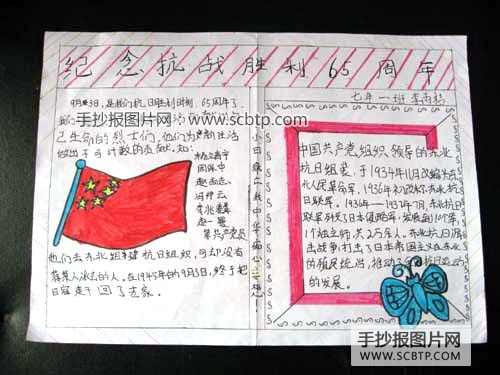 纪念抗战胜利65周年
七年一班
9月3日,是我们抗日胜利时刻 65周年了.
己生命的烈士们,他们为
做出不可计数的贡献,如:
杨靖宇
周保中
赵尚志
冯仲云
李兆麟
赵一曼
等共产党员
他们去东北组建抗日组织,可却没有
的人,在1945年的9月3日,终于把
日寇赶回了老家.
中国共产党组织领导的东北
抗日组装,于1934年11月改编为东
北人民革命军,1936年初改称东北抗日
联军.1936年—1937年7月,东北抗日
联军歼灭了日本侵略军,发展到10个军,
1个独立师,共2万余人.东北抗日游
击战争打击了日本帝国主义在东北
的殖民统治,推动了
的发展.
手抄报图片网
WWW.SCBTP.COM
手抄报图片网
WWW.SCBTP.COM